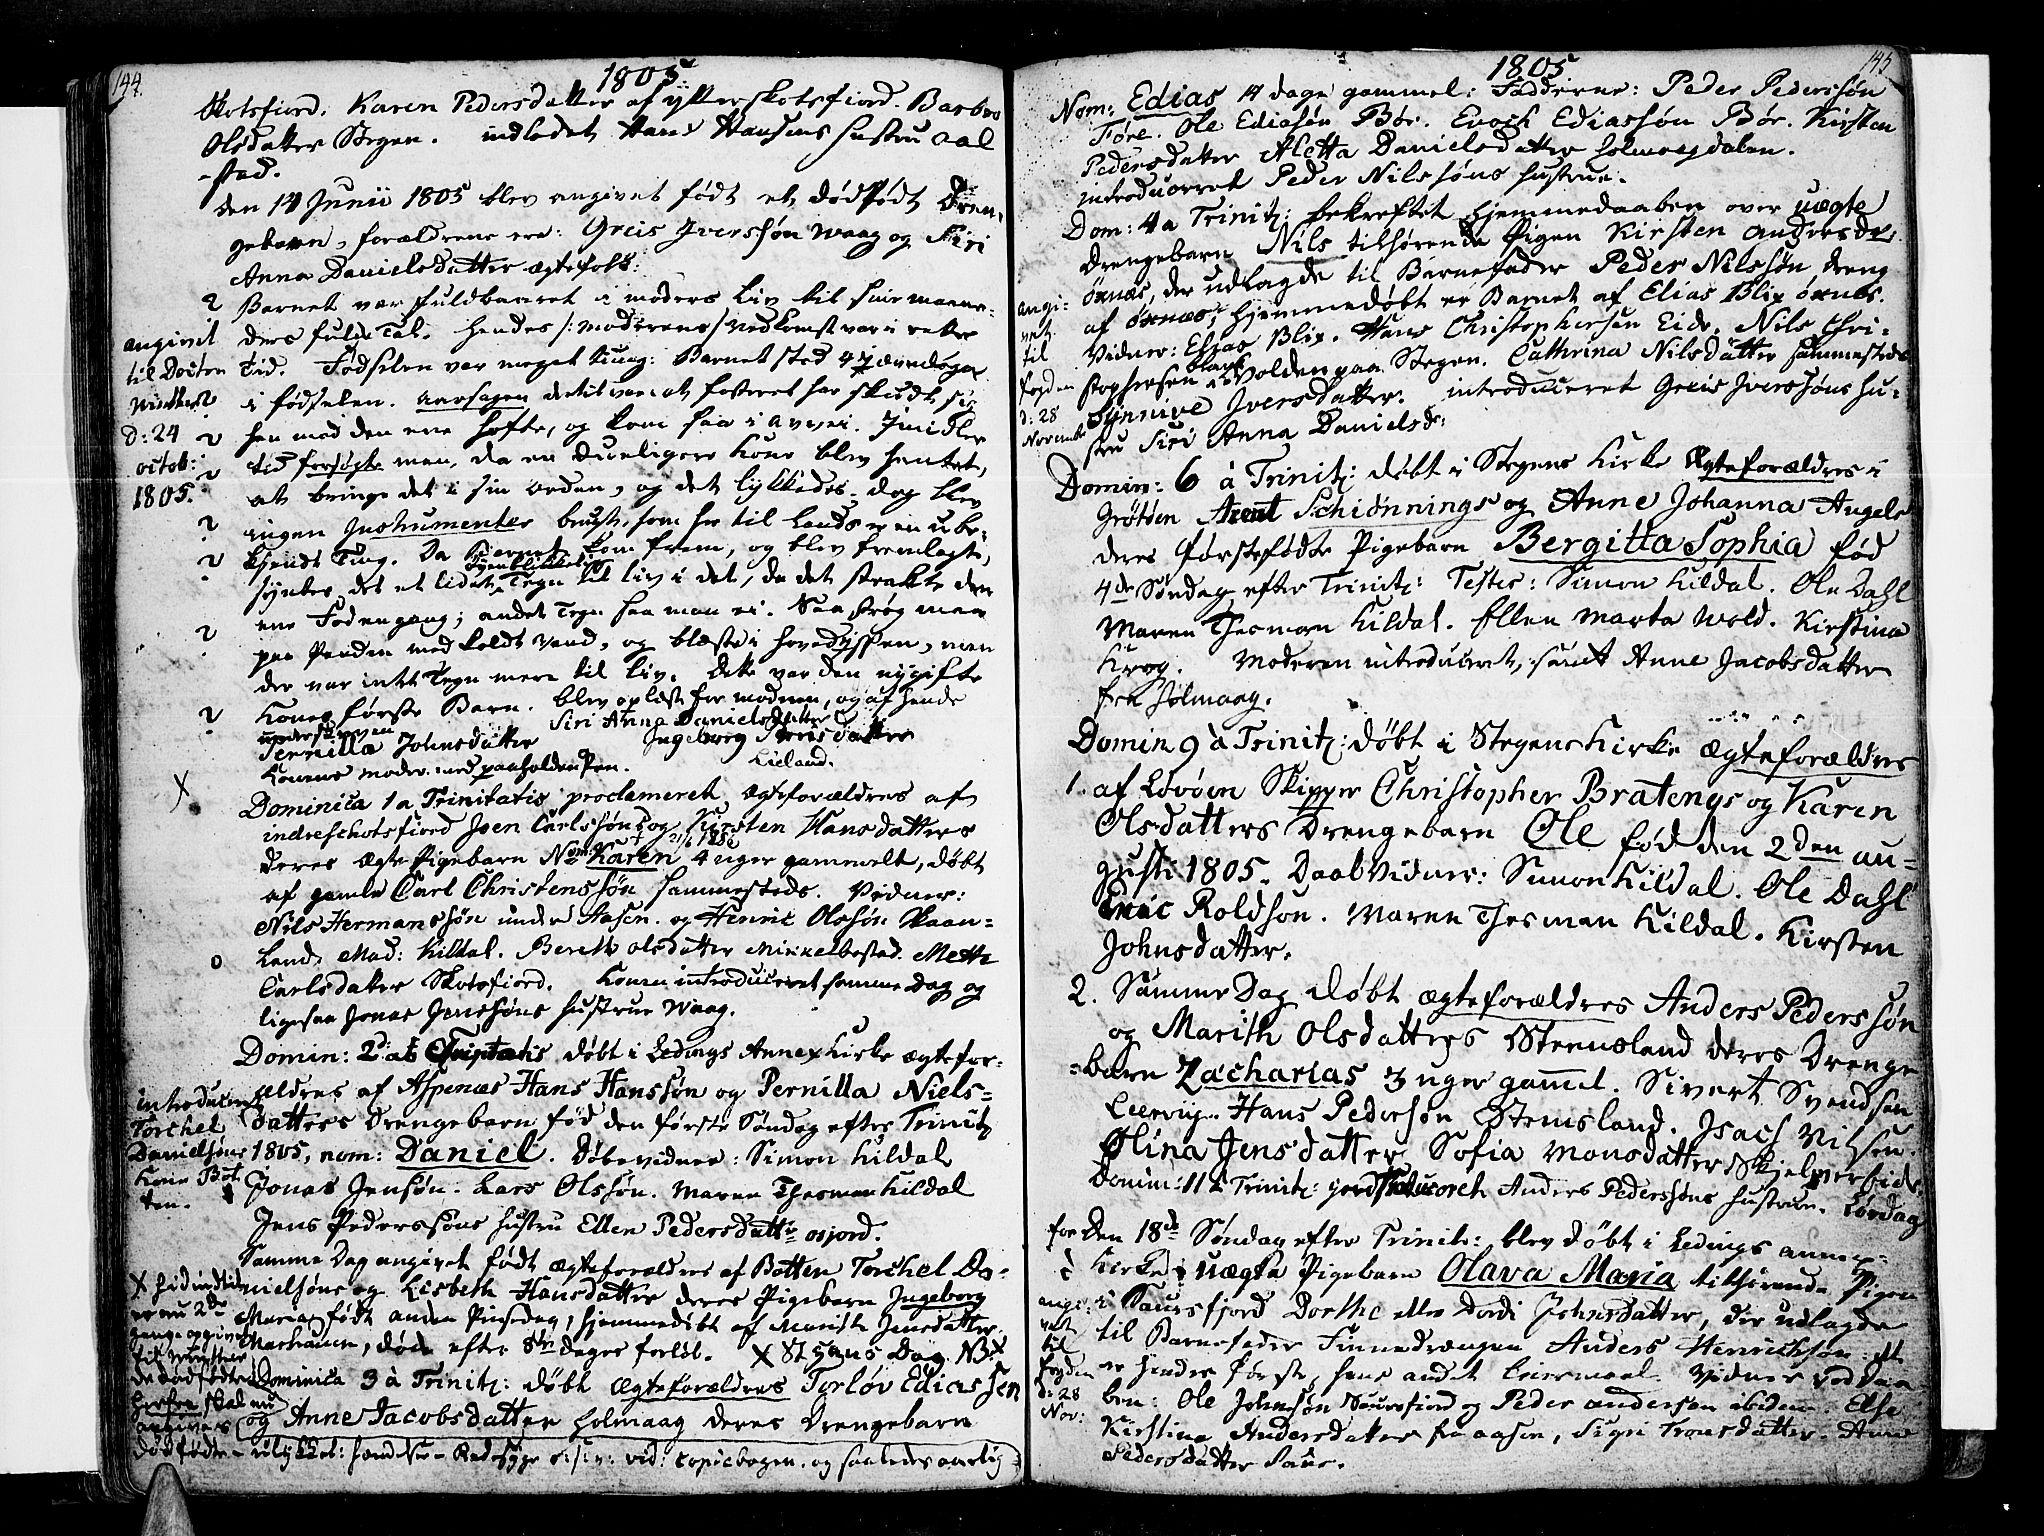 144.
1805
Skotsfiord. Karen Pedersdatter af ytterskotsfiord. Barbro
Olsdatter Stegen. indledet Hans Hansens hustru Aal
-stad.
den 14 Junii 1805 blev angivet født et dødfødt Dren-
gebarn, forældrene ere: Greis Iverssøn Waag og Siri
Anna Danielsdatter ægtefolk:
Barnet var fuldbaaret i moders Liv til sine maane-
ders fulde Tal. Hendes /: moderens/ Nedkomst var i rette
Tid. Fødselen var meget tung: Barnet stod
i fødselen. aarsagen dertil var at fosteret har skudt sig
hen mod den ene hofte, og kom saa i Imidler
tid forsøgte man, da en dueligere Kone blev hentet,
at bringe det i sin orden, og det lykkedes. dog blev
ingen Instrumenter brugt, som her til Lands er en ube-
kjendt Ting. Da Barnet kom frem, og blev fremlagte,
øyeblikkeligt
syntes det et lidet Tegn til liv i det, da det strakte den
ene Fod en gang; andet Tegn saa man ei. Saa strøg man
paa Panden med koldt vand, og blæste i hovedissen, men
der var intet Tegn mere til liv. Dette var den nygifte
Kones første Barn. blev oplæst for modren, og af hende
underskreven Siri Anna Danielsdatter
Pernilla Johnsdatter Ingeborg Greisdatter
Konens moder. med paaholden Pen. Lieland.
angivet
til Doctor
d: 24
octob:
1805.
Dominica 1 a Trinitatis proclameret ægteforældres af
indreschotsfiord Joen Carlssøns og Kirsten Hansdatters
deres ægte Pigebarn Nom: Karen 4 uger gammelt, døbt
af gamle Carl Christenssøn sammesteds. Vidner:
Nils Hermanssøn under Aasen. og Henric Olssøn Skaan-
Land. Mad: Kildal. Bereth olsdatter Mikkelbostad. Mette
Carlsdatter Skotsfiord. Konen introduceret samme Dag og
ligesaa Jonas Jenssøns hustrue Waag.
Domin: 2d: a Trinitatis døbt i Ledings Annex Kirke ægtefor-
ældres af Aspenæs Hans Hanssøn og Pernilla Niels-
datters Drengebarn fød den første Søndag efter Trinit:
1805, nom: Daniel. Døbevidner: Simon Kildal
Jonas Jensøn. Lars Olssøn. Maren Thesman Kildal
Jens Pederssøns hustru Ellen Pedersdatt: osjord.
introduceret
Torchel
Danielsøns
Kone Bot
ten.
Samme Dag angivet født ægteforældres af Botten Torchel Da-
nielsøns og Lisbeth Hansdatter deres Pigebarn Ingeborg
Maria født anden Pinsedag, hjemmedøbt af Marith Jensdatter
Marhaunn, døde efter 8te dages forløb. X St Hans Dag NB X
Dominica 3 à Trinit: døbt ægteforældres Torløv Ediassen
og Anne Jacobsdatter holmaag deres Drengebarn
X hidindtil
er nu 2de
gange angivet
til
de dødfødte
herefter skal nu
angives
dødfødte - ulykkel: hændelse - Radesyge vid: copiebogen. og saaledes aarlig
145
1805
Nom: Edias 14 dage gammel: Fadderne: Peder Pederssøn
Føre. Ole Ediasøn Bør. Enoch Ediassøn Bør. Kirsten
Pedersdatter Aletta Danielsdatter holmaagdalen.
introduceret Peder Nilssøns hustrue.
Dom: 4 a Trinit: bekreftet hjemmedaaben over uægte
Drengebarn Nils tilhørende Pigen Kirsten Andersdr
øxnæs, der udlagde til Barnefader Peder Nilssøn dreng
af øxnæs; hjemmedøbt er Barnet af Elias Blix øxnæs.
Vidner: Elias Blix. Hans Christophersen Eide. Nils Chri-
stophersen Wolden paa Stegen. Cathrina Nilsdatter sammesteds
Synnive Iversdatter. introduceret Greis Iverssøns hu-
stru Siri Anna Danielsd:
angi-
vet
til
fogden
d: 28
Novemb:
Domin: 6 à Trinit: døbt i Stegens Kirke Ægteforældres i
Grøtøen Arent Schiønnings og Anne Johanna Angels
deres førstefødte Pigebarn Bergitta Sophia fød
4de Søndag efter Trinit: Testes: Simon Kildal. Ole Dahl
Maren Thesman Kildal. Ellen Marta Wold. Kirstina
Krog. Moderen introduceret, samt Anne Jacobsdatter
fra holmaag.
Domin 9 à Trinit: døbt i Stegens Kirke ægteforældres
1. af Løvøen Skipper Christopher Bratengs og Karen
Olsdatters Drengebarn Ole fød den 2den au-
gusti 1805. Daabvidner: Simon Kildal. Ole Dahl
Eric Roldson. Maren Thesman Kildal. Kirsten
Johnsdatter.
2. Samme Dag døbt ægteforældres Anders Pederssøn
og Marith Olsdatters Stensland deres Drenge
-barn Zacharias 3 uger gammel. Sivert Svendsen
Leervig. Hans Pedersøn Stensland. Isach Nilsen.
Olina Jensdatter, Sofia Monsdatter Skjelverbid:
Domin: 11 à Trinit: introduceret Anders Pederssøns hustrue. Lørdag
for Den 18de Søndag efter Trinit: blev døbt i Ledings annex-
Kirke uægta Pigebarn Olava Maria tilhørende Pigen
i Saursfjord Dorthe eller Dordi Johnsdatter, der udlagde
til Barnefader Finnedrengen Anders Henrichsøn: det
er hendes første, hans andet Leiermaal. Vidner ved Daa
ben: Ole Johnsøn Saursfiord og Peder andersen ibidem. Else
Kirstina Andersdatter fra aasen, Sigri Tronsdatter. Anne
Pedersdatter Saur.
angi-
vet
til
fogden
d: 28
Nov: